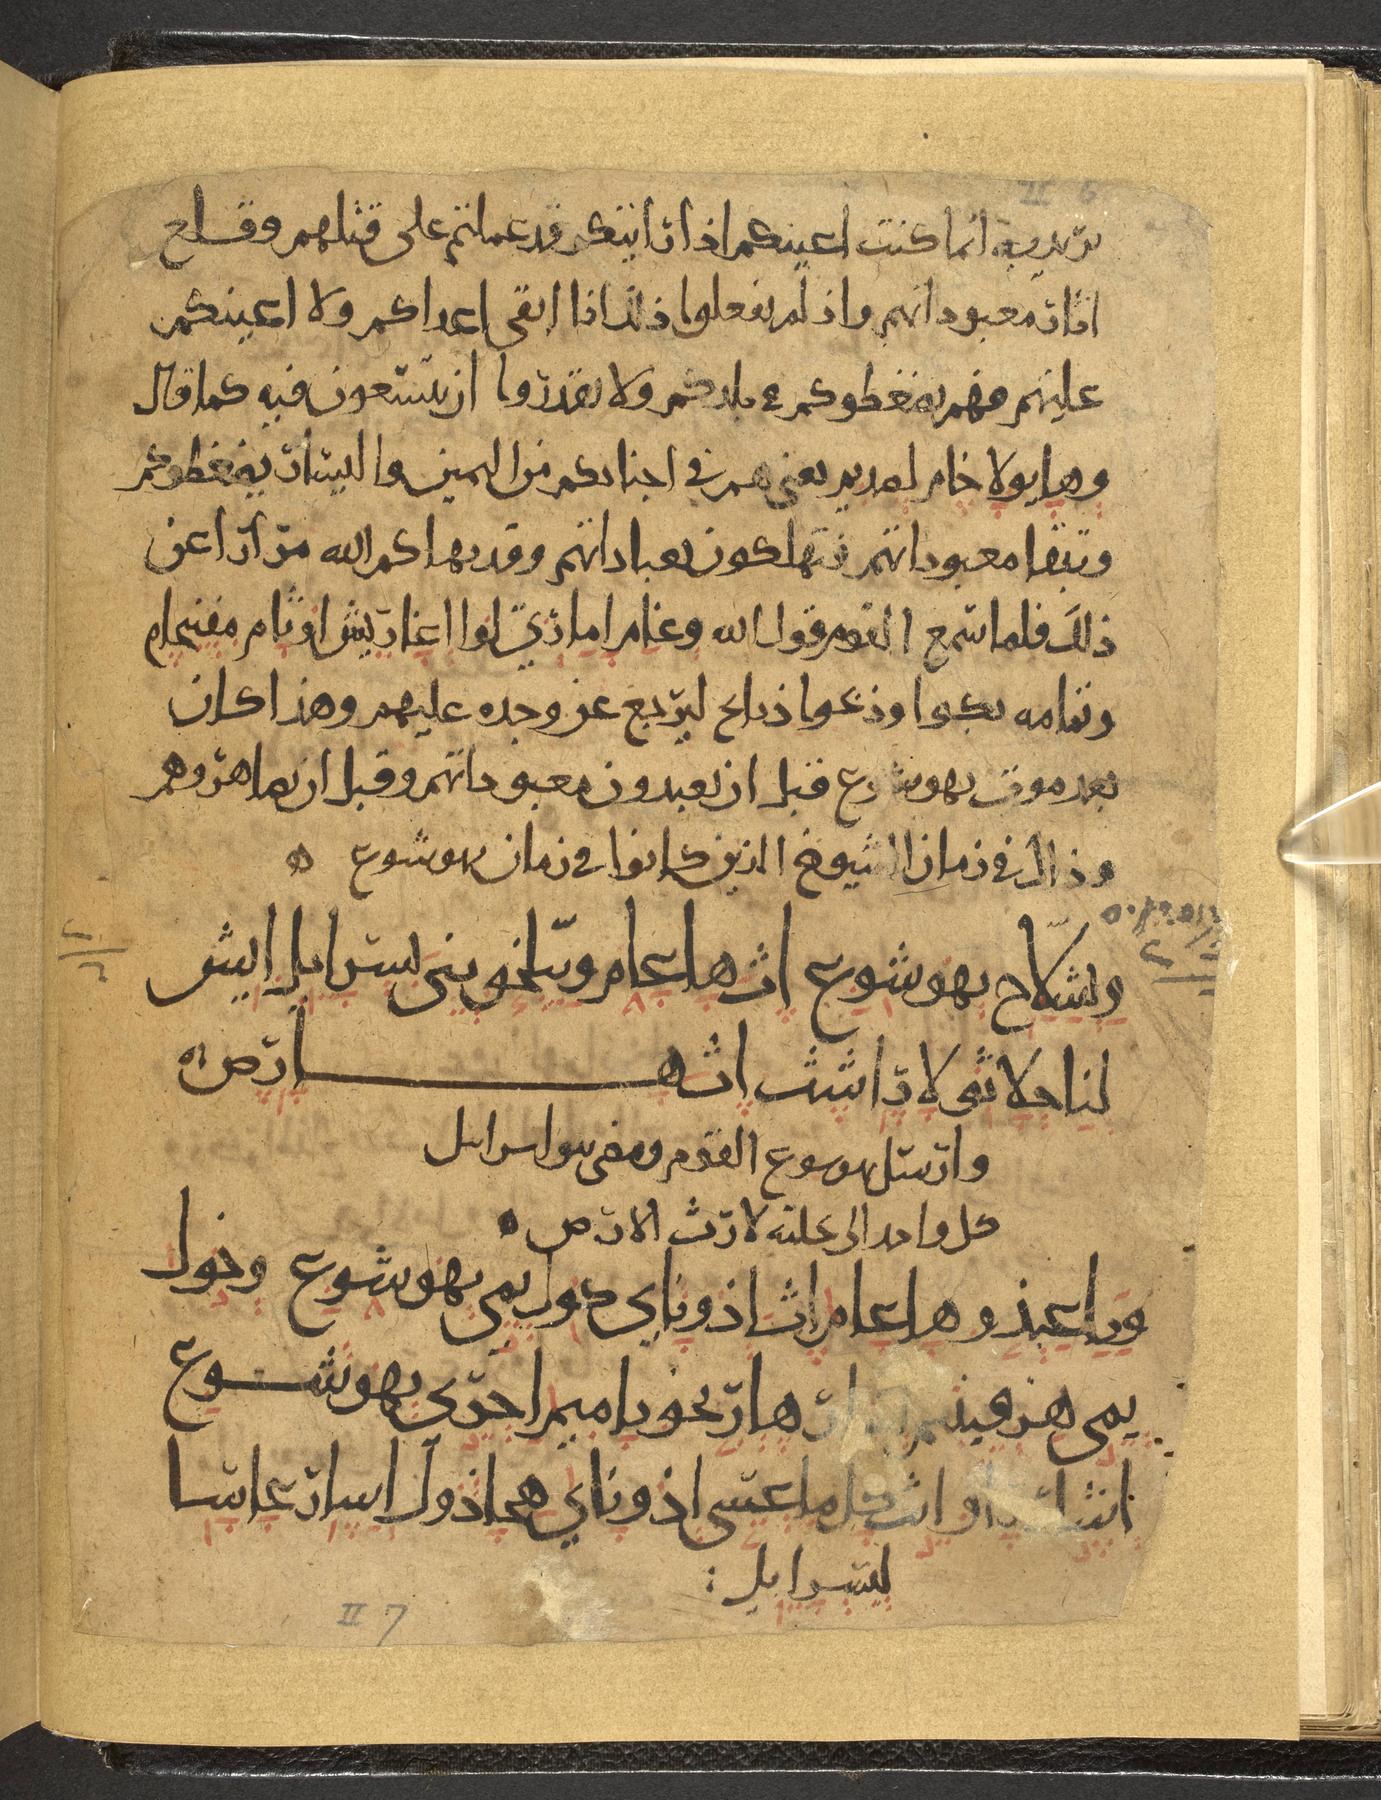 انما كنت اعينكم اذا رايتكم قد عملتم على قتلهم وقلع
اثار معبوداتهم واذ لم تفعلوا ذلك انا ابقى اعداكم ولا اعينكم
عليهم فهم يضغطوكم في بلدكم ولا تقدروا ان تتسعون فيه كما قال
وهايولاخام لصديم يعني هم في اجنابكم من اليمين واليسار يضغطوكم
وتبقا معبوداتهم فتهلكون بعباداتهم وقد نهاكم الله مرارا عن
ذلك فلما سمع القوم قول الله وغام
وتمامه بكوا وذبحوا ذبايح ليرجع عز وجده عليهم وهذا كان
بعد موت يهوشوع قبل ان يعبدون معبوداتهم وقبل ان يصاهروهم
وذالك في زمان الشيوخ الذين كانوا في زمان يهوشوع ه
ويشلاح يهوشوع اث هاعام ويلخو بني يسرايل ايش
لناحلاثو لاراشث اث هـــارص ه
وارسل يهوشوع القوم ومضى بنو اسرايل
كل واحد الى نحلته لارث الارض ه
وياعبذو هاعام اث اذوناي كول يمي يهوشوع وخول
يمي هزقينيم اشار هاريخو ياميم احري يهوشوع
اشار راو اث كل ماعسي اذوناي هجاذول اشار عاسا
ليسرايل :
II 6
II 7